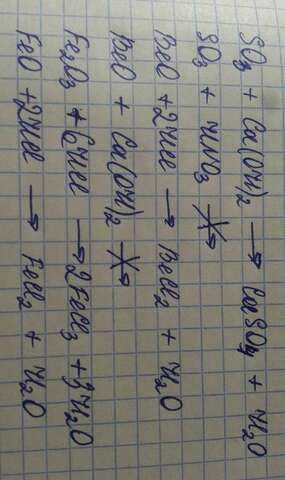 SO₃ + Ca(OH)₂ → CaSO₄ + H₂O
SO₃ + HNO₃ ↛
BeO + 2HCl → BeCl₂ + H₂O
BeO + Ca(OH)₂ ↛
Fe₂O₃ + 6HCl → 2FeCl₃ + 3H₂O
FeO + 2HCl → FeCl₂ + H₂O